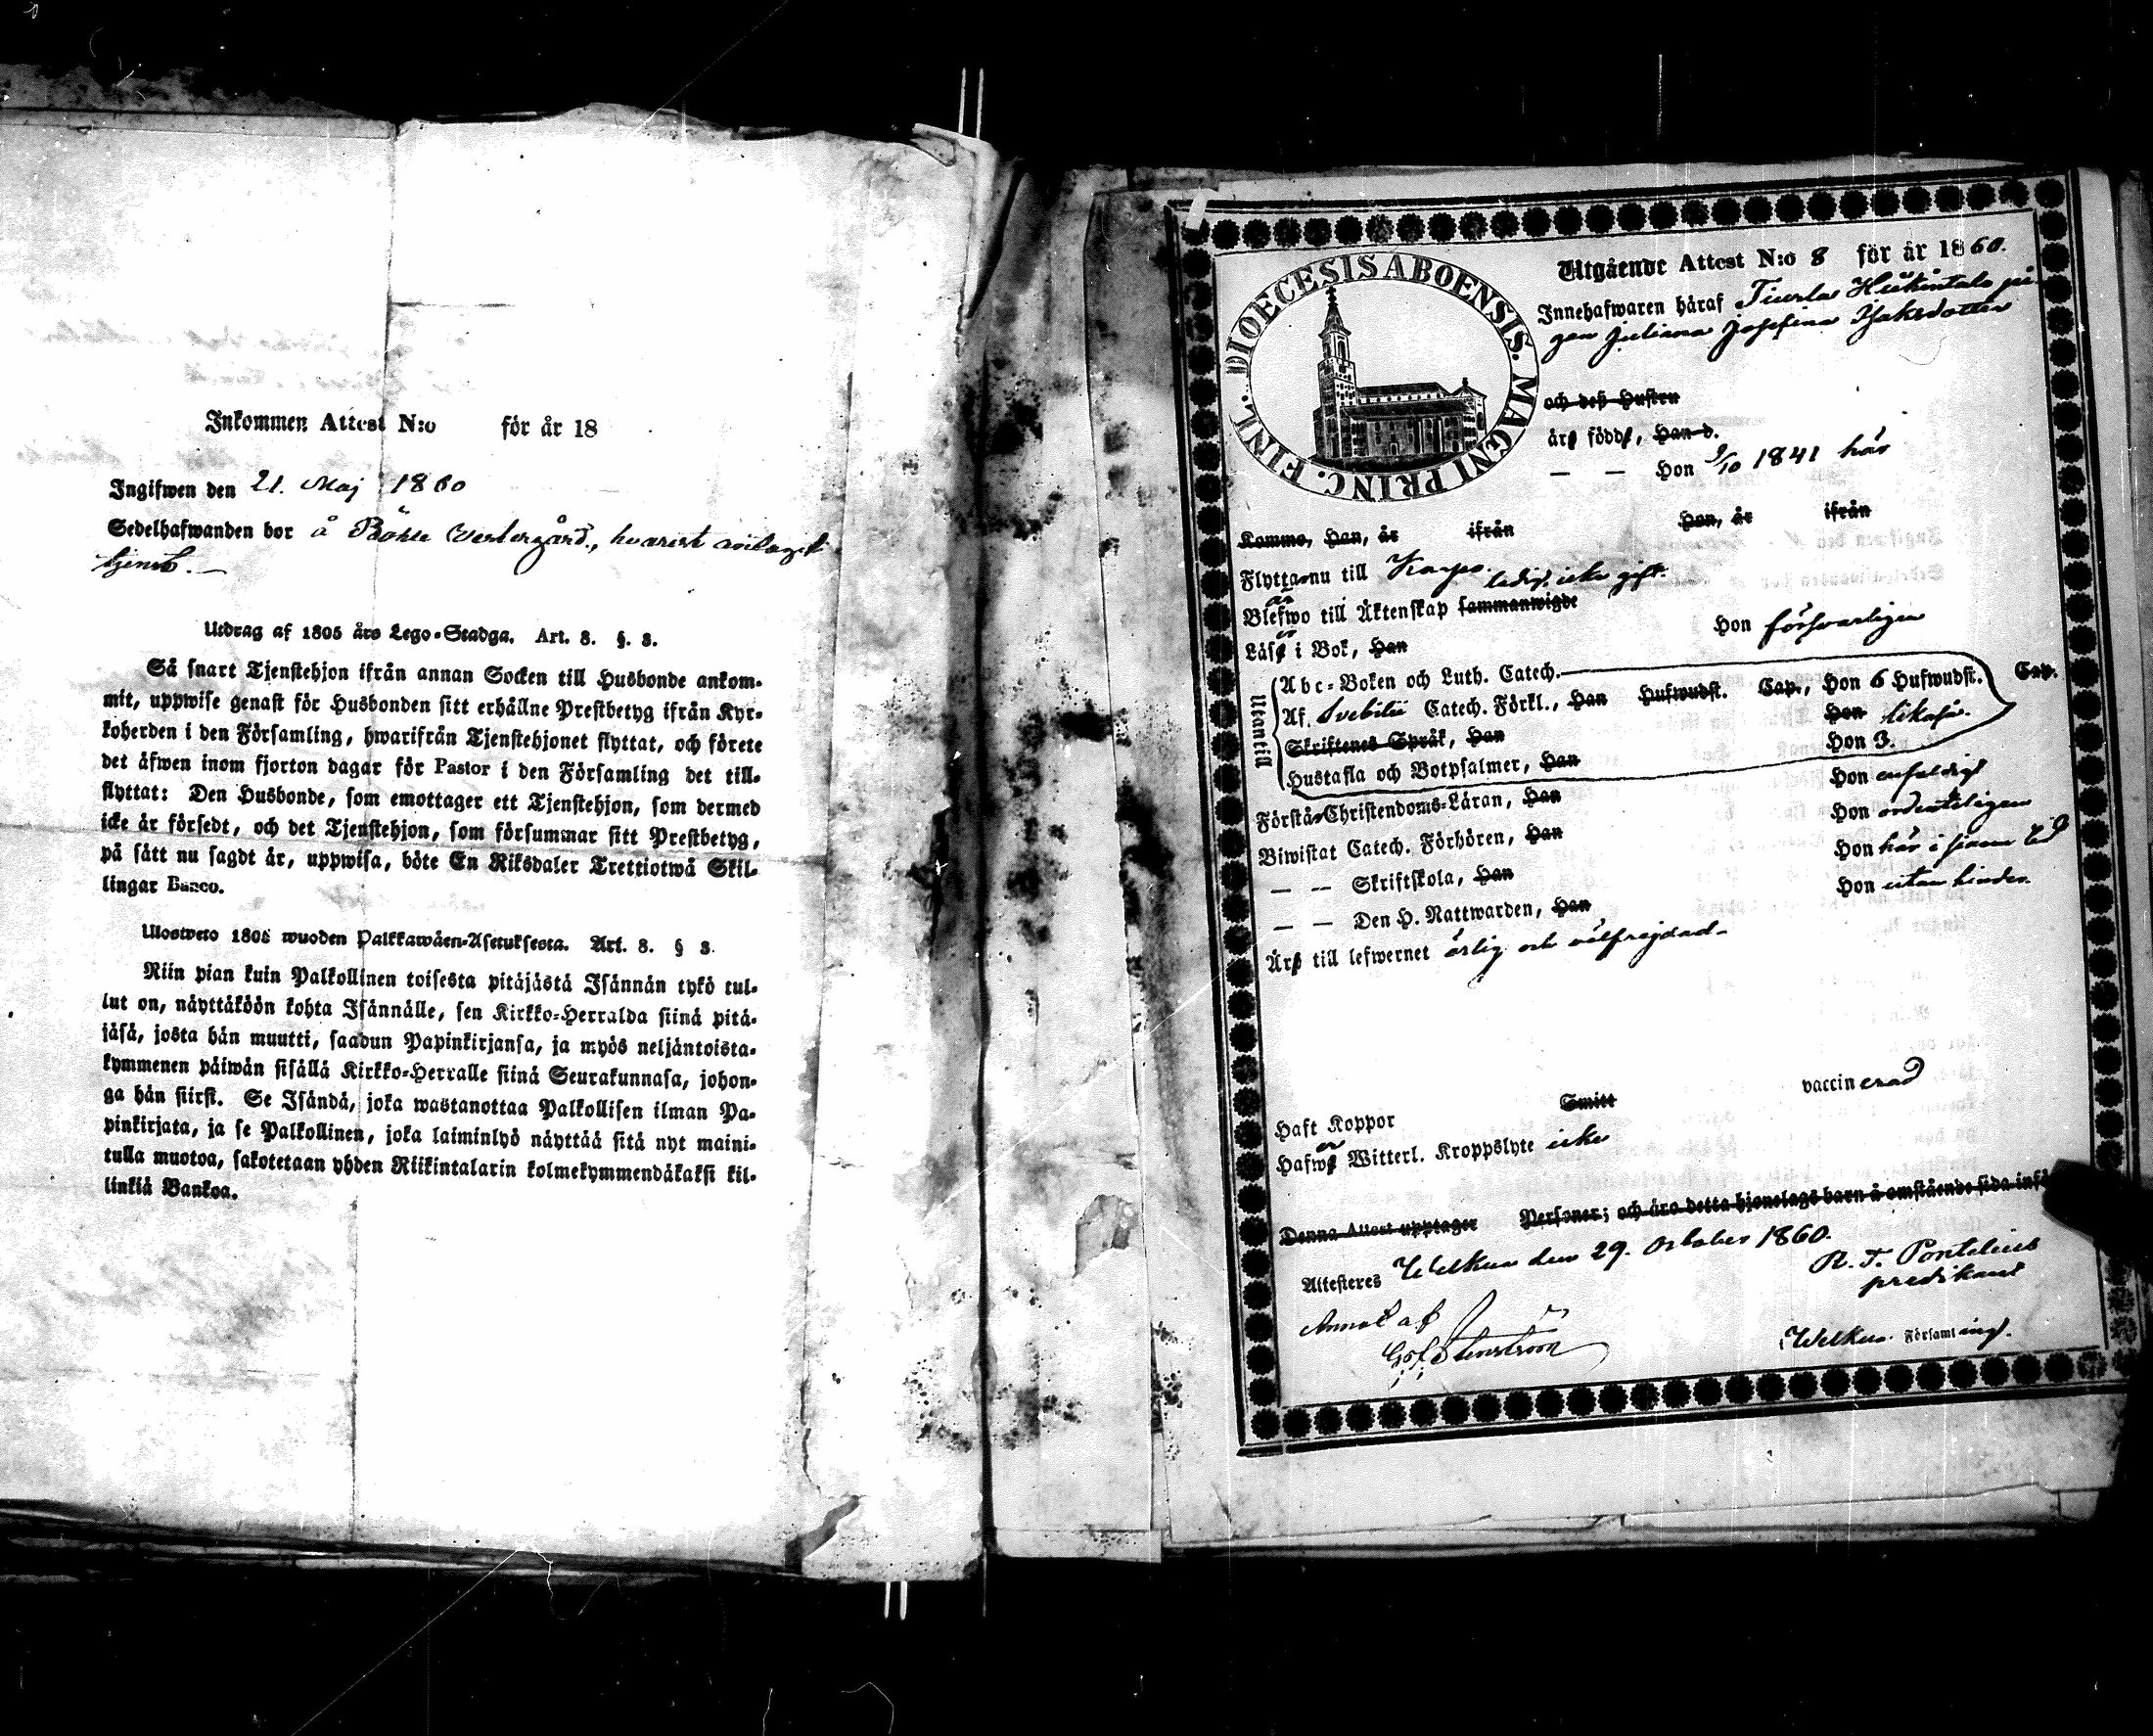 Inkommen Attest N:o för år 18
Ingifwen den 21. Maj 1860
Sedelhafwanden bor å Böhle Westergård, hvarest antaget
tjenst. —
Utdrag af 1805 års Lego-Stadga. Art. 8. §. 3.
Så snart Tjenstehjon ifrån annan Socken till Husbonde ankom-
mit, uppwise genast för Husbonden sitt erhållne Prestbetyg ifrån Kyr-
koherden i den Församling, hwarifrån Tjenstehjonet flyttat, och förete
det äfwen inom fjorton dagar för Pastor i den Församling det till-
flyttat: Den Husbonde, som emottager ett Tjenstehjon, som dermed
icke är försedt, och det Tjenstehjon, som försummar sitt Prestbetyg,
på sätt nu sagdt är, uppwisa, böte En Riksdaler Trettiotwå Skil-
lingar Banco.
Ulosweto 1805 wuoden Palkkawäen-Asetuksesta. Art. 8. § 3.
Niin pian kuin Palkollinen toisesta pitäjästä Isännän tykö tul-
lut on, näyttäköön kohta Isännälle, sen Kirkko-Herralda siinä pitä-
jäsä, josta hän muutti, saadun Papinkirjansa, ja myös neljäntoista-
kymmenen päiwän sisällä Kirkko-Herralle siinä Seurakunnasa, johon-
ga hän siirsi. Se Isändä, joka wastanottaa Palkollisen ilman Pa-
pinkirjata, ja se Palkollinen, joka laiminlyö näyttää sitä nyt maini-
tulla muotoa, sakotetaan yhden Riikintalarin kolmekymmendäkaksi kil-
linkiä Bankoa.
DIOECESIS ABOENSIS. MAGNI PRINC. FINL.
Utgående Attest N:o 8 för år 1860.
Innehafwaren häraf Tiurla Hükintalo pi-
gan Juliana Josefina Isaksdotter
och deß Hustru
äro födde, Han d.
— — Hon 9/10 1841 här
Kommo, Han, år ifrån Hon, år ifrån
Flytta nu till Korpo.
är ledig, icke gift.
Blefwo till Äktenskap sammanwigde
Läse i Bok, Han Hon försvarligen
Utantill
Abc-Boken och Luth. Catech.
Af Svebilii Catech. Förkl., Han Hufwudst. Cap., Hon 6 Hufwudst. Cap.
Skriftenes Språk, Han Hon likaså.
Hustafla och Botpsalmer, Han Hon 3.
Förstå Christendoms-Läran, Han Hon enfaldigt
Biwistat Catech. Förhören, Han Hon ordenteligen
— — Skriftskola, Han Hon här i sinom tid
— — Den H. Nattwarden, Han Hon utan hinder.
Äro till lefwernet ärlig och välfrejdad.
Haft Koppor Smitt vaccinerad
Hafwa Witterl. Kroppslyte icke
Denna Attest upptager Personer; och äro detta hjonelags barn å omstående sida inf
Attesteres Welkua den 29. October 1860.
R. F. Pontelius
predikant
Annot af
Welkua Församling.